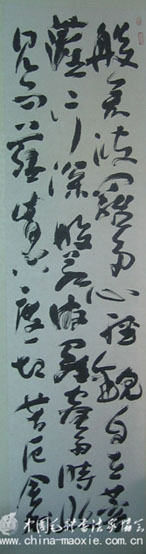 般若波羅多心經觀自在菩
薩行深般若波羅蜜多時照
見五蘊皆空度一切苦厄舍
中国毛体书法
www.china-maoxie.com.cn